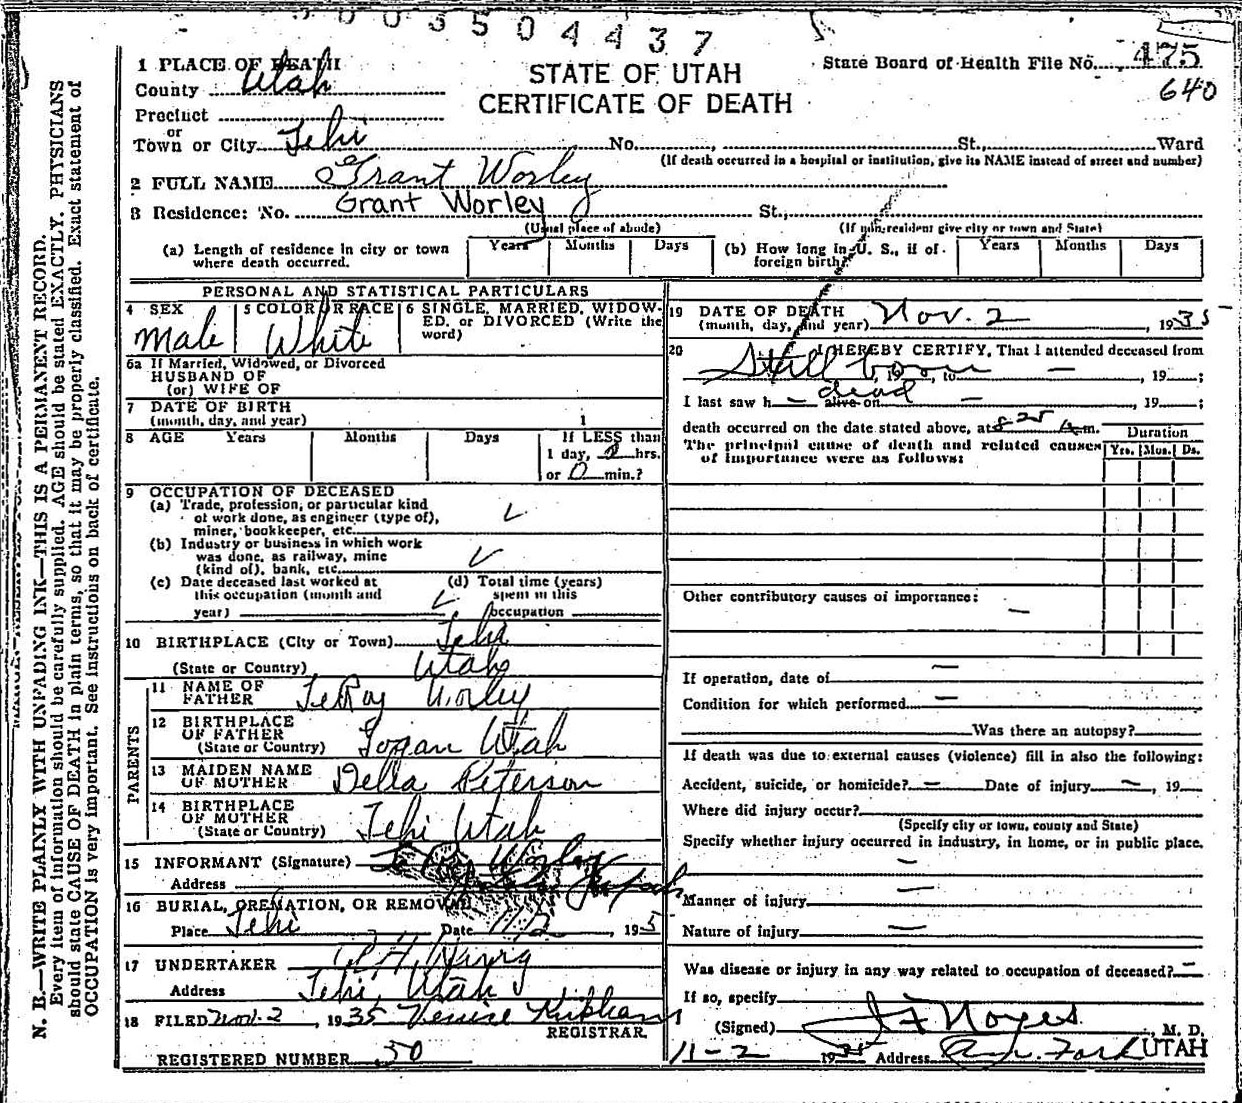 003504437
1 PLACE OF DEATH
STATE OF UTAH
CERTIFICATE OF DEATH
State Board of Health File No. 475
640
County Utah
Precinct
or
Town or City Lehi No. , St., Ward
(If death occurred in a hospital or institution, give its NAME instead of street and number)
2 FULL NAME Grant Worley
3 Residence: No. Grant Worley St.,
(Usual place of abode) (If non-resident give city or town and State)
(a) Length of residence in city or town where death occurred. Years Months Days (b) How long in U. S., if of foreign birth? Years Months Days
PERSONAL AND STATISTICAL PARTICULARS
4 SEX Male
5 COLOR OR RACE White
6 SINGLE, MARRIED, WIDOWED, or DIVORCED (Write the word)
6a If Married, Widowed, or Divorced
HUSBAND OF
(or) WIFE OF
7 DATE OF BIRTH
(month, day, and year) 1
8 AGE Years Months Days If LESS than
1 day, 0 hrs.
or 0 min.?
9 OCCUPATION OF DECEASED
(a) Trade, profession, or particular kind
of work done, as engineer (type of),
miner, bookkeeper, etc.
(b) Industry or business in which work
was done, as railway, mine
(kind of), bank, etc.
(c) Date deceased last worked at
this occupation (month and
year)
(d) Total time (years)
spent in this
occupation
10 BIRTHPLACE (City or Town) Lehi
(State or Country) Utah
PARENTS
11 NAME OF
FATHER LeRoy Worley
12 BIRTHPLACE
OF FATHER
(State or Country) Logan Utah
13 MAIDEN NAME
OF MOTHER Della Peterson
14 BIRTHPLACE
OF MOTHER
(State or Country) Lehi Utah
15 INFORMANT (Signature) Worley
Address
16 BURIAL, CREMATION, OR REMOVAL
Place Lehi Date 11/2, 1935
17 UNDERTAKER
Address Lehi, Utah
18 FILED Nov. 2, 1935
REGISTRAR
REGISTERED NUMBER 50
19 DATE OF DEATH
(month, day, and year) Nov. 2, 1935
20 I HEREBY CERTIFY, That I attended deceased from
Still born, 19 , to — , 19 — ;
I last saw h — alive on dead — , 19 — ;
death occurred on the date stated above, at 8 25 A m.
The principal cause of death and related causes
of importance were as follows:
Duration
Yrs. Mos. Ds.
Other contributory causes of importance:
—
If operation, date of —
Condition for which performed —
Was there an autopsy?
If death was due to external causes (violence) fill in also the following:
Accident, suicide, or homicide? — Date of injury — , 19
Where did injury occur?
(Specify city or town, county and State)
Specify whether injury occurred in industry, in home, or in public place.
—
Manner of injury —
Nature of injury —
Was disease or injury in any way related to occupation of deceased? —
If so, specify
(Signed) J F Noyes, M. D.
11-2 1935 Address Am. Fork UTAH
N. B.—WRITE PLAINLY WITH UNFADING INK—THIS IS A PERMANENT RECORD.
Every item of information should be carefully supplied. AGE should be stated EXACTLY. PHYSICIANS
should state CAUSE OF DEATH in plain terms, so that it may be properly classified. Exact statement of
OCCUPATION is very important. See instructions on back of certificate.